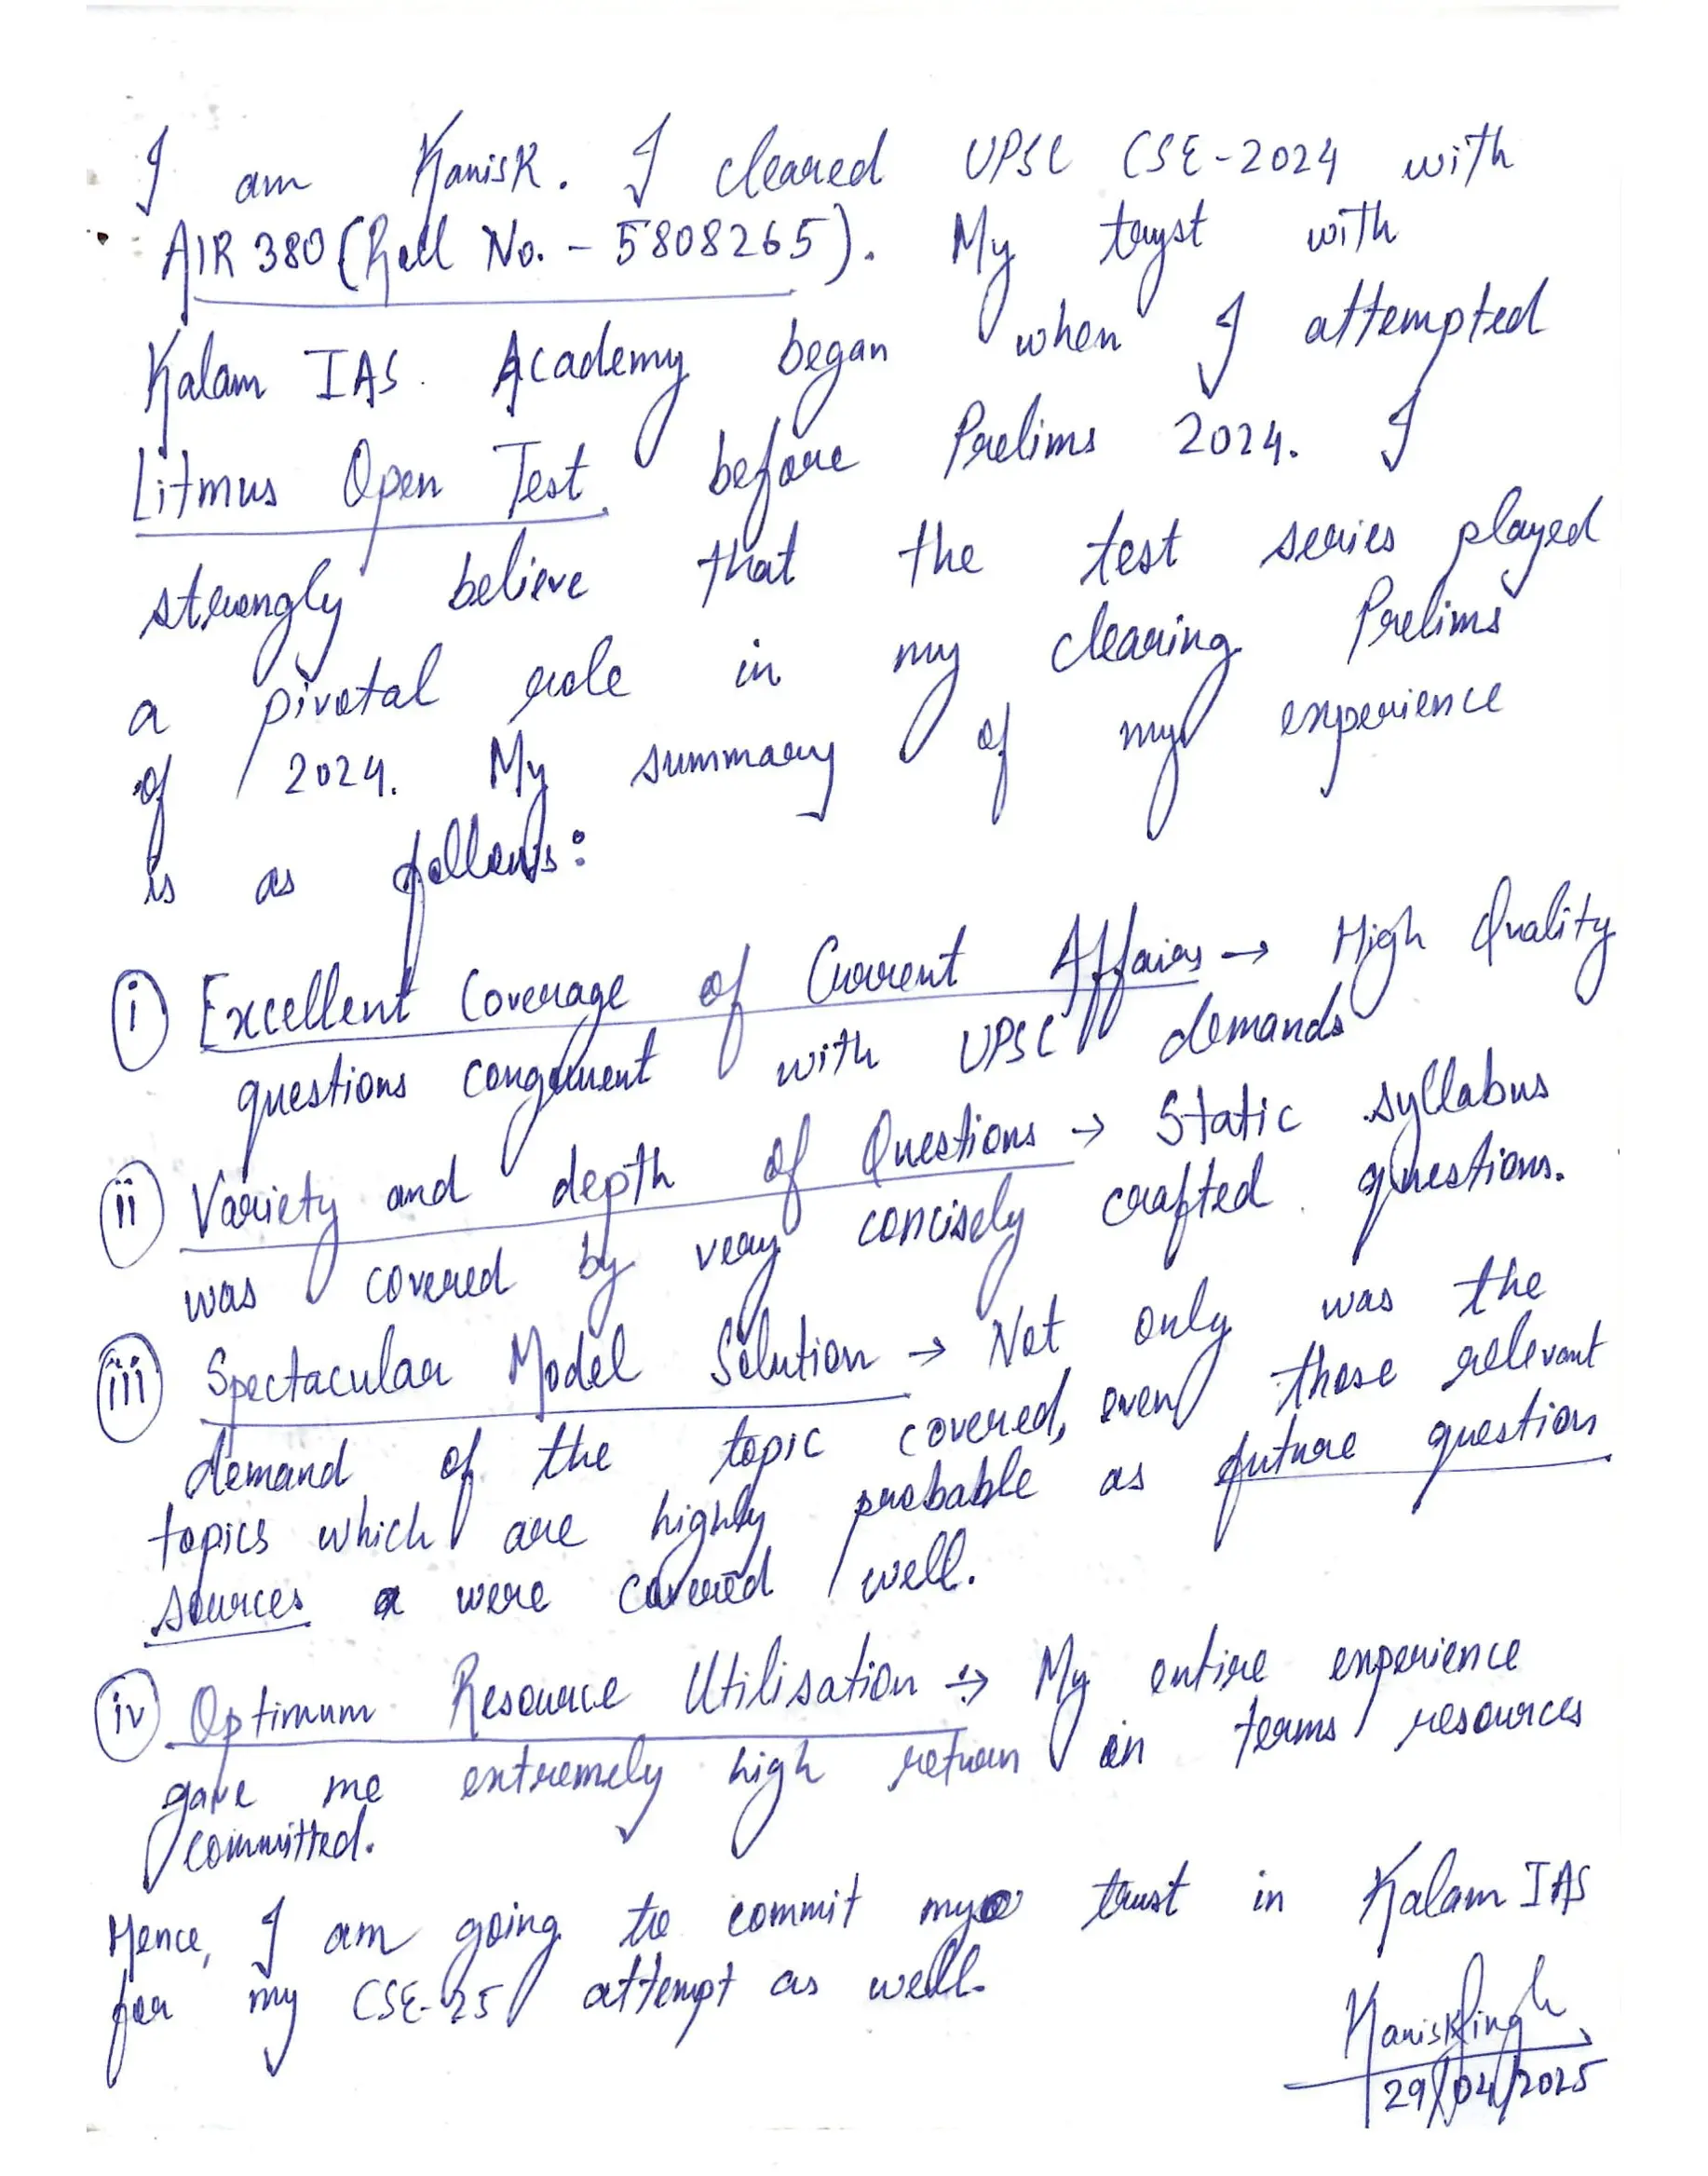 I am Kanisk. I cleared UPSC CSE-2024 with
AIR 380 (Roll No. - 5808265). My tryst with
Kalam IAS Academy began when I attempted
Litmus Open Test before Prelims 2024. I
strongly believe that the test series played
a pivotal role in my clearing Prelims
of 2024. My summary of my experience
is as follows:
(i) Excellent Coverage of Current Affairs → High Quality
questions congruent with UPSC demands
(ii) Variety and depth of Questions → Static syllabus
was covered by very concisely crafted questions.
(iii) Spectacular Model Solution → Not only was the
demand of the topic covered, even those relevant
topics which are highly probable as future question
sources were covered well.
(iv) Optimum Resource Utilisation → My entire experience
gave me extremely high return in terms resources
committed.
Hence, I am going to commit my trust in Kalam IAS
for my CSE-25 attempt as well.
Kanisk Singh
29/04/2025